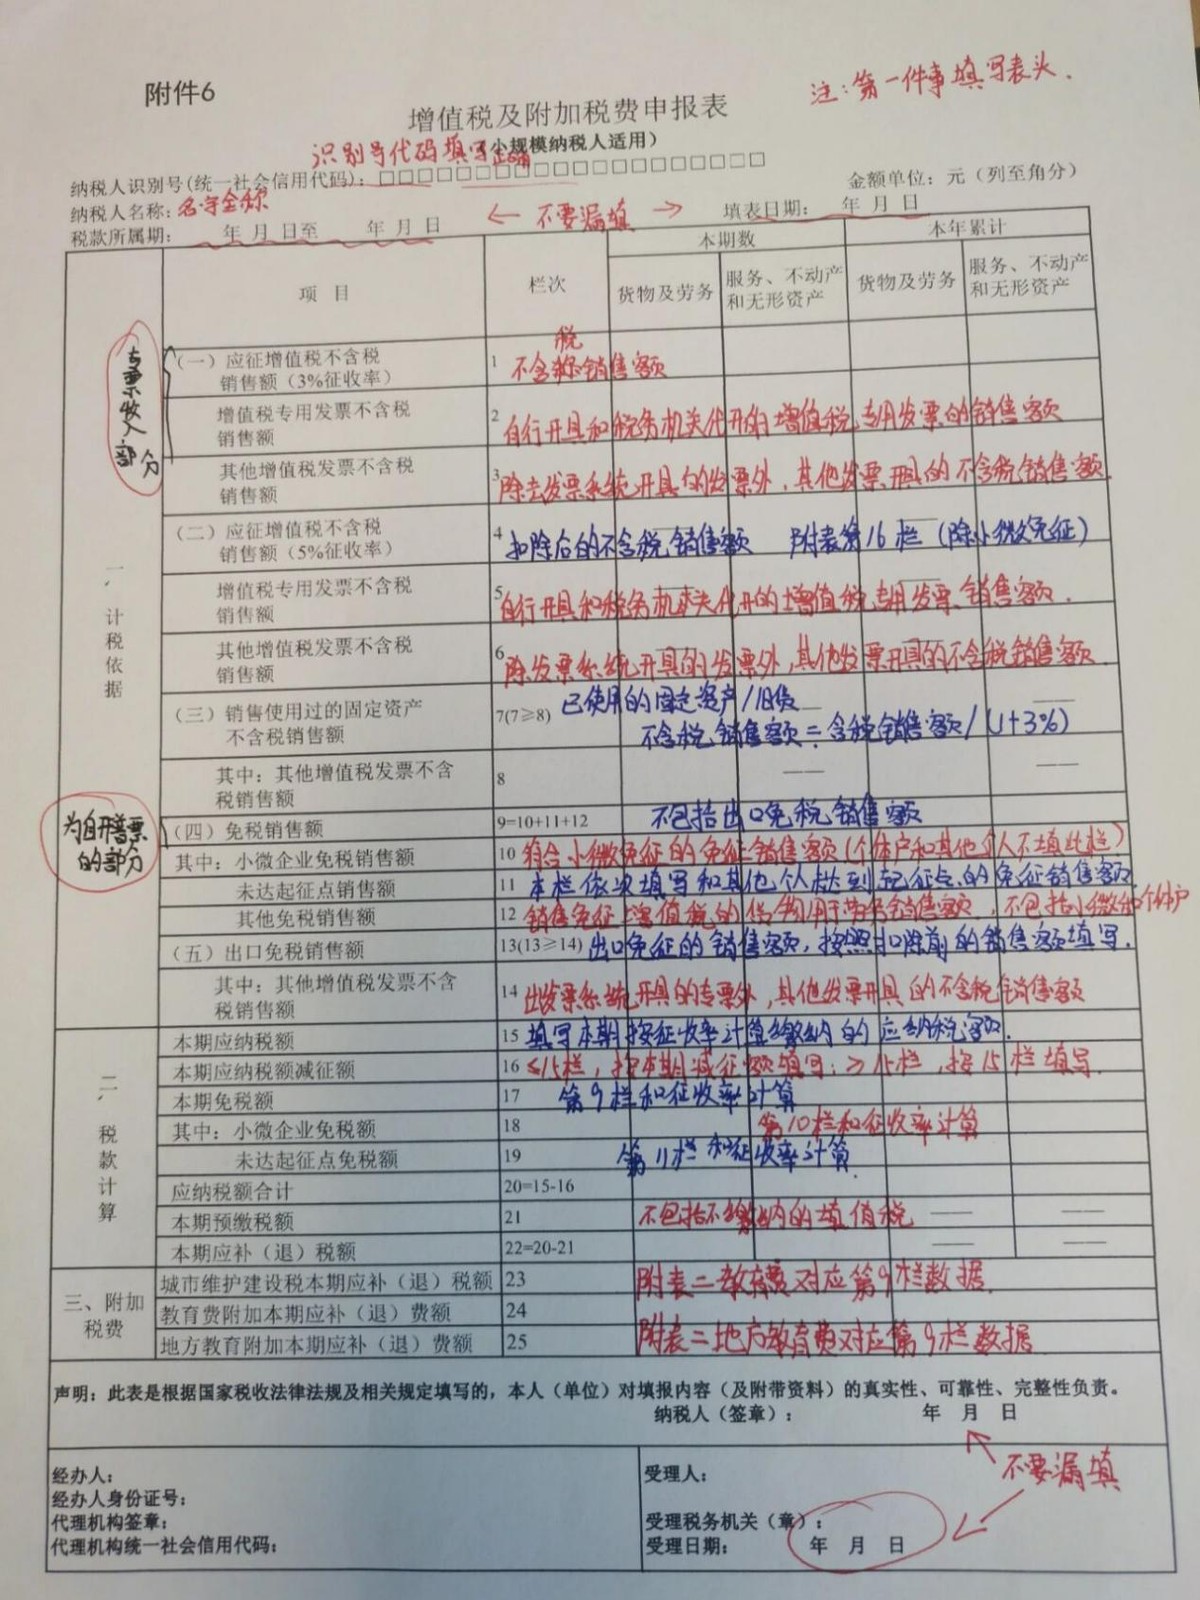 附件6
注：第一件事填写表头.
增值税及附加税费申报表
（小规模纳税人适用）
识别号代码填写正确
纳税人识别号(统一社会信用代码)：□□□□□□□□□□□□□□□□□□□□
金额单位：元（列至角分）
纳税人名称：名字全称
← 不要漏填 →
填表日期： 年 月 日
税款所属期： 年 月 日至 年 月 日
项 目
栏次
本期数
本年累计
货物及劳务
服务、不动产和无形资产
货物及劳务
服务、不动产和无形资产
专票收入部分
一、计税依据
（一）应征增值税不含税
销售额（3%征收率）
1
税
不含称销售额
增值税专用发票不含税
销售额
2
自行开具和税务机关代开的增值税专用发票的销售额
其他增值税发票不含税
销售额
3
除去发票系统开具的发票外，其他发票开具的不含税销售额.
（二）应征增值税不含税
销售额（5%征收率）
4
扣除后的不含税销售额 附表第16栏（除小微免征）
增值税专用发票不含税
销售额
5
自行开具和税务机关代开的增值税专用发票销售额.
其他增值税发票不含税
销售额
6
除发票系统开具的发票外，其他发票开具的不含税销售额
（三）销售使用过的固定资产
不含税销售额
7(7≥8)
已使用的固定资产/旧货
不含税销售额=含税销售额/（1+3%）
——
其中：其他增值税发票不含
税销售额
8
——
——
为自开普票的部分
（四）免税销售额
9=10+11+12
不包括出口免税销售额
其中：小微企业免税销售额
10
符合小微免征的免征销售额（个体户和其他个人不填此栏）
未达起征点销售额
11
其他免税销售额
12
（五）出口免税销售额
13(13≥14)
出口免征的销售额，按照扣除前的销售额填写.
其中：其他增值税发票不含
税销售额
14
出发票系统开具的专票外，其他发票开具的不含税销售额
二、税款计算
本期应纳税额
15
填写本期按征收率计算缴纳的应纳税额.
本期应纳税额减征额
16
≤15栏，按本期减征额填写；≥15栏，按15栏填写.
本期免税额
17
第9栏和征收率计算
其中：小微企业免税额
18
第10栏和征收率计算
未达起征点免税额
19
第11栏和征收率计算.
应纳税额合计
20=15-16
本期预缴税额
21
不包括不缴纳的填值税
——
——
本期应补（退）税额
22=20-21
——
——
三、附加税费
城市维护建设税本期应补（退）税额
23
附表二教育费对应第9栏数据.
教育费附加本期应补（退）费额
24
地方教育附加本期应补（退）费额
25
附表二地方教育费对应第9栏数据
声明：此表是根据国家税收法律法规及相关规定填写的，本人（单位）对填报内容（及附带资料）的真实性、可靠性、完整性负责。
纳税人（签章）： 年 月 日
不要漏填
经办人：
经办人身份证号：
代理机构签章：
代理机构统一社会信用代码：
受理人：
受理税务机关（章）：
受理日期： 年 月 日